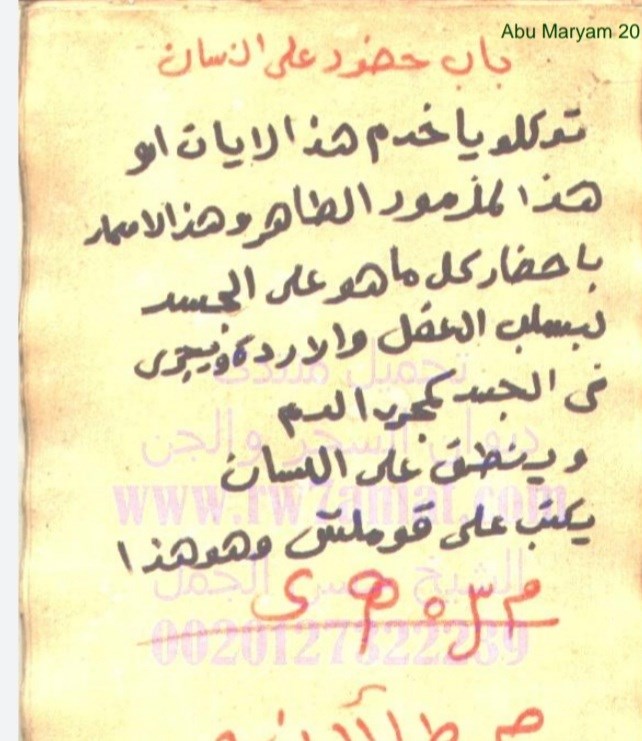 Abu Maryam 20
باب حضور على انسان
توكلو يا خدم هذا الايات او
هذا المزمور الطاهر وهذا الاسماء
باحضار كل ما هو على الجسد
لبسلب العقل والاردة ويجرى
فى الجسد كمجرى الدم
وينطق على اللسان
يكتب على قوملتق وهو هذا
تحميل منتدى
ديوان السحر والجن
www.rw7aniat.com
الشيخ حسن الجمل
0020127322289